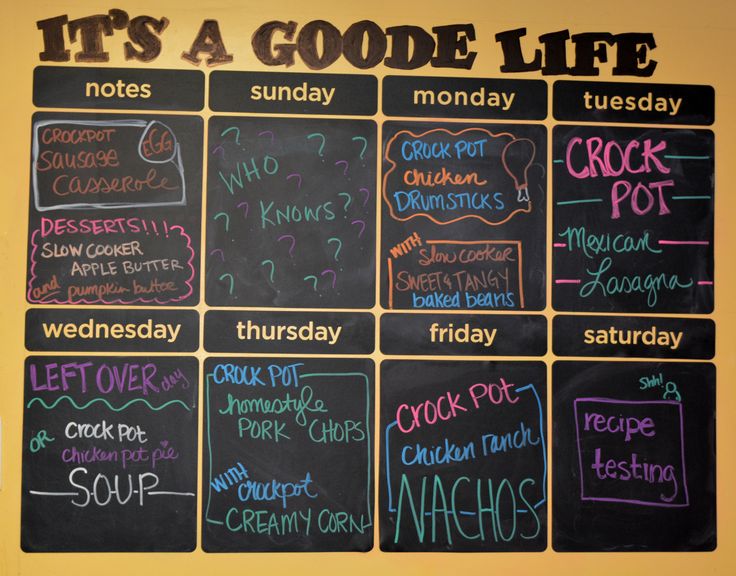 IT'S A GOODE LIFE
notes
CROCKPOT
sausage
casserole
EGG
DESSERTS!!!
SLOW COOKER
APPLE BUTTER
and pumpkin butter
sunday
?
WHO
KNOWS?
monday
CROCK POT
chicken
DRUMSTICKS
WITH
slow cooker
SWEET & TANGY
baked beans
tuesday
CROCK
POT
Mexican
Lasagna
wednesday
LEFTOVER day
OR
crock pot
chicken pot pie
S-O-U-P
thursday
CROCK POT
homestyle
PORK CHOPS
WITH
crockpot
CREAMY CORN
friday
Crock Pot
chicken ranch
NACHOS
saturday
Shh!
recipe
testing